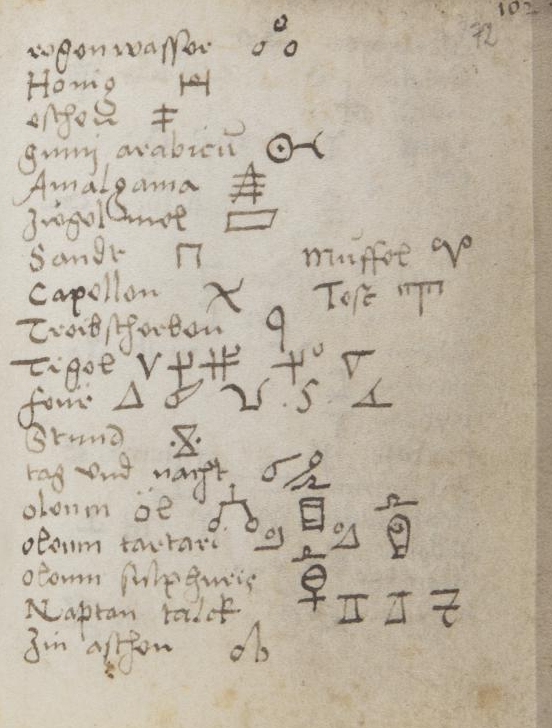 102
72
regenwasser
Honig
eschen
gum̄j arabicū
Amalgama
Ziegel mel
Sandt Muffel
Capellen Test
Treibscherben
Tigel
feur
Stund
tag und nacht
oleum öl
oleum tartari
oleum sulphuris
Naptan talck
Zin aschen